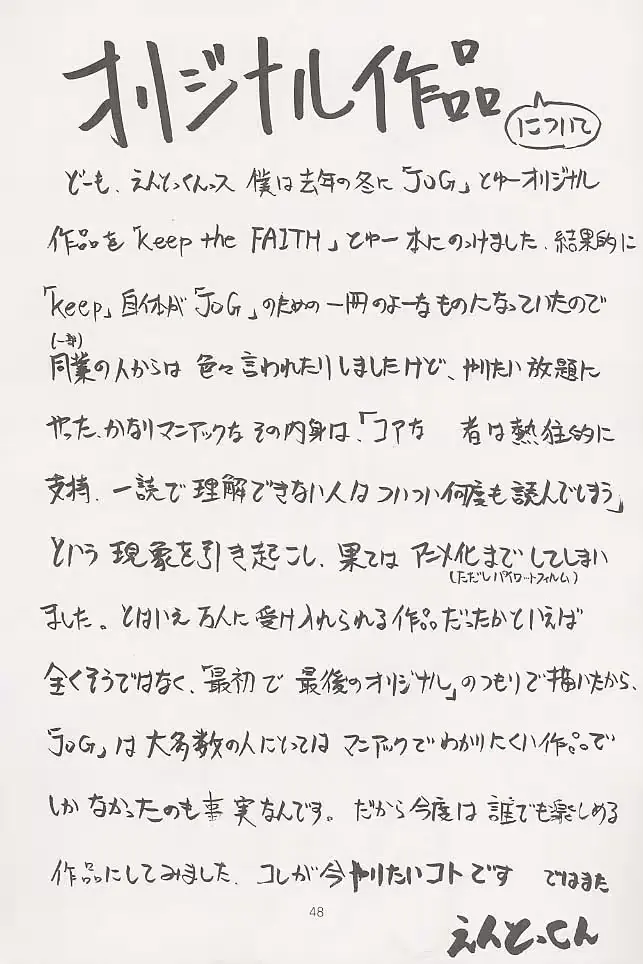 オリジナル作品
について
どーも、えんどっくんっス 僕は去年の冬に「JOG」とゆーオリジナル
作品を「keep the FAITH」とゆー本にのっけました、結果的に
「keep」自体が「JOG」のための一冊のよーなものになっていたので
(一部)
同業の人からは 色々言われたりしましたけど、やりたい放題に
やった、かなりマニアックな その内身は、「コアな 者は熱狂的に
支持、一読で理解できない人は ついつい何度も読んでしまう」
という 現象を引き起こし、果ては アニメ化までしてしまい
(ただしパイロットフィルム)
ました。とはいえ万人に受け入れられる作品だったかといえば
全くそうではなく、「最初で 最後のオリジナル」のつもりで描いたから、
「JOG」は大多数の人にとっては マニアックでわかりにくい作品で
しかなかったのも事実なんです。だから今度は 誰でも楽しめる
作品にしてみました、コレが今やりたいコトです ではまた
48
えんどっくん